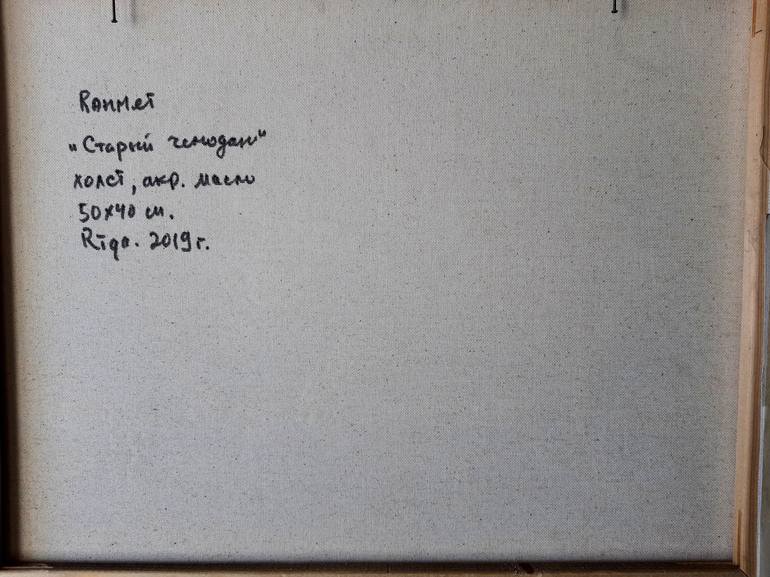 Ranmet
„Старый чемодан“
холст, акр. масло
50x40 см.
Rīga. 2019 г.